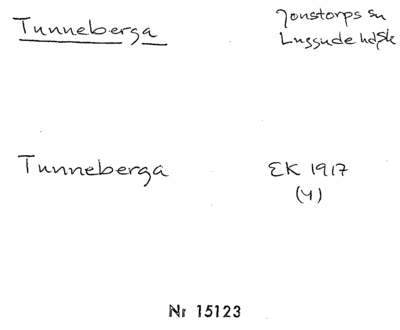 Tunneberga
Jonstorps sn
Luggude hd Sk
Tunneberga
EK 1917
(4)
Nr 15123